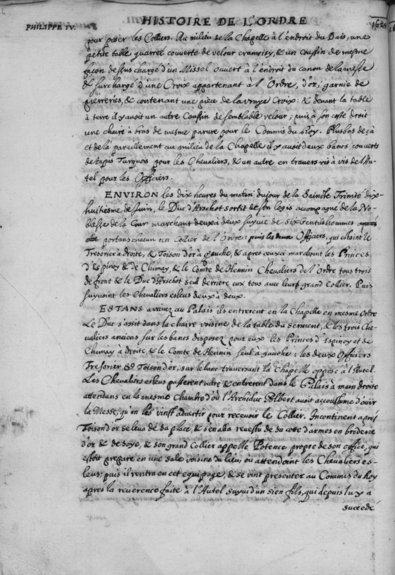 PHILIPPE IV. HISTOIRE DE L'ORDRE
pour poser les Colliers. Au milieu de la Chapelle à l'endroit du Dais, une
petite table quarree couverte de velour cramoisy, & un Coussin de mesme
façon dessus chargé d'un Missel ouvert à l'endroit du canon de la messe
& surchargé d'un Croix appartenant à l'Ordre, d'or, garnie de
pierreries, & contenant une piece de la vraye Croix: & devant la table
à terre il y avoit un autre Coussin de semblable velour; puis à son costé droit
une chaire à bras de mesme parure pour le Commis du Roy. Plus bas deçà
et de là parallement au milieu de la Chapelle il y avoit deux bancs couverts
de tapis Turquois pour les Chevaliers, & un autre en travers vis à vis de l'Au-
tel pour les Officiers.
ENVIRON les dix heures du matin du jour de la Sainte Trinité dix-
huitiesme de Juin, le Duc d'Arschot sortit de son logis accompagné de la No-
blesse de la Cour marchant deux à deux suyvie de
portans chacun un Colier de l'Ordre: puis les deux Officiers, qui estoient le
Tresorier à droite, & Toison d'or à gauche, & apres eux marchoient les Princes
d'Espinoy & de Chimay, & le Comte de Hennin Chevaliers de l'Ordre tous trois
de front & le Duc d'Arschot seul derriere eux tous avec leurs grand Collier. Puis
suyvoient les Chevaliers esleus deux à deux.
ESTANS arrivez au Palais ils entrerent en la Chapelle en mesme Ordre
Le Duc s'assit dans la chaire voisine de la table du serment, & les trois Che-
valiers anciens sur les bancs disposez pour eux les Princes d'Espinoy et de
Chimay à Droite, & le Comte de Hennin seul à gauche: les deux Officiers
Tresorier & Toison d'or, sur le banc traversant la Chapelle opposé à l'Autel.
Les Chevaliers esleus passerent outre & entrerent dans le Palais à main droite
attendans en la mesme Chambre d'où l'Archiduc Albert avoit accoustumé d'ouir
la Messe, qu'on les vinst advertir pour recevoir le Collier. Incontinent apres
Toison d'or se leva de sa place, & s'en alla revestir de sa cotte d'armes en broderie
d'or & de soye, & son grand Collier appellé Potence propre de son office, qui
estoit preparé en une sale voisine du lieu où attendoient les Chevaliers es-
leus; puis il rentra en cet equipage, & se vint presenter au Commis du Roy
apres la reverence faite à l'Autel suyvi d'un sien fils, qui depuis luy a
succedé